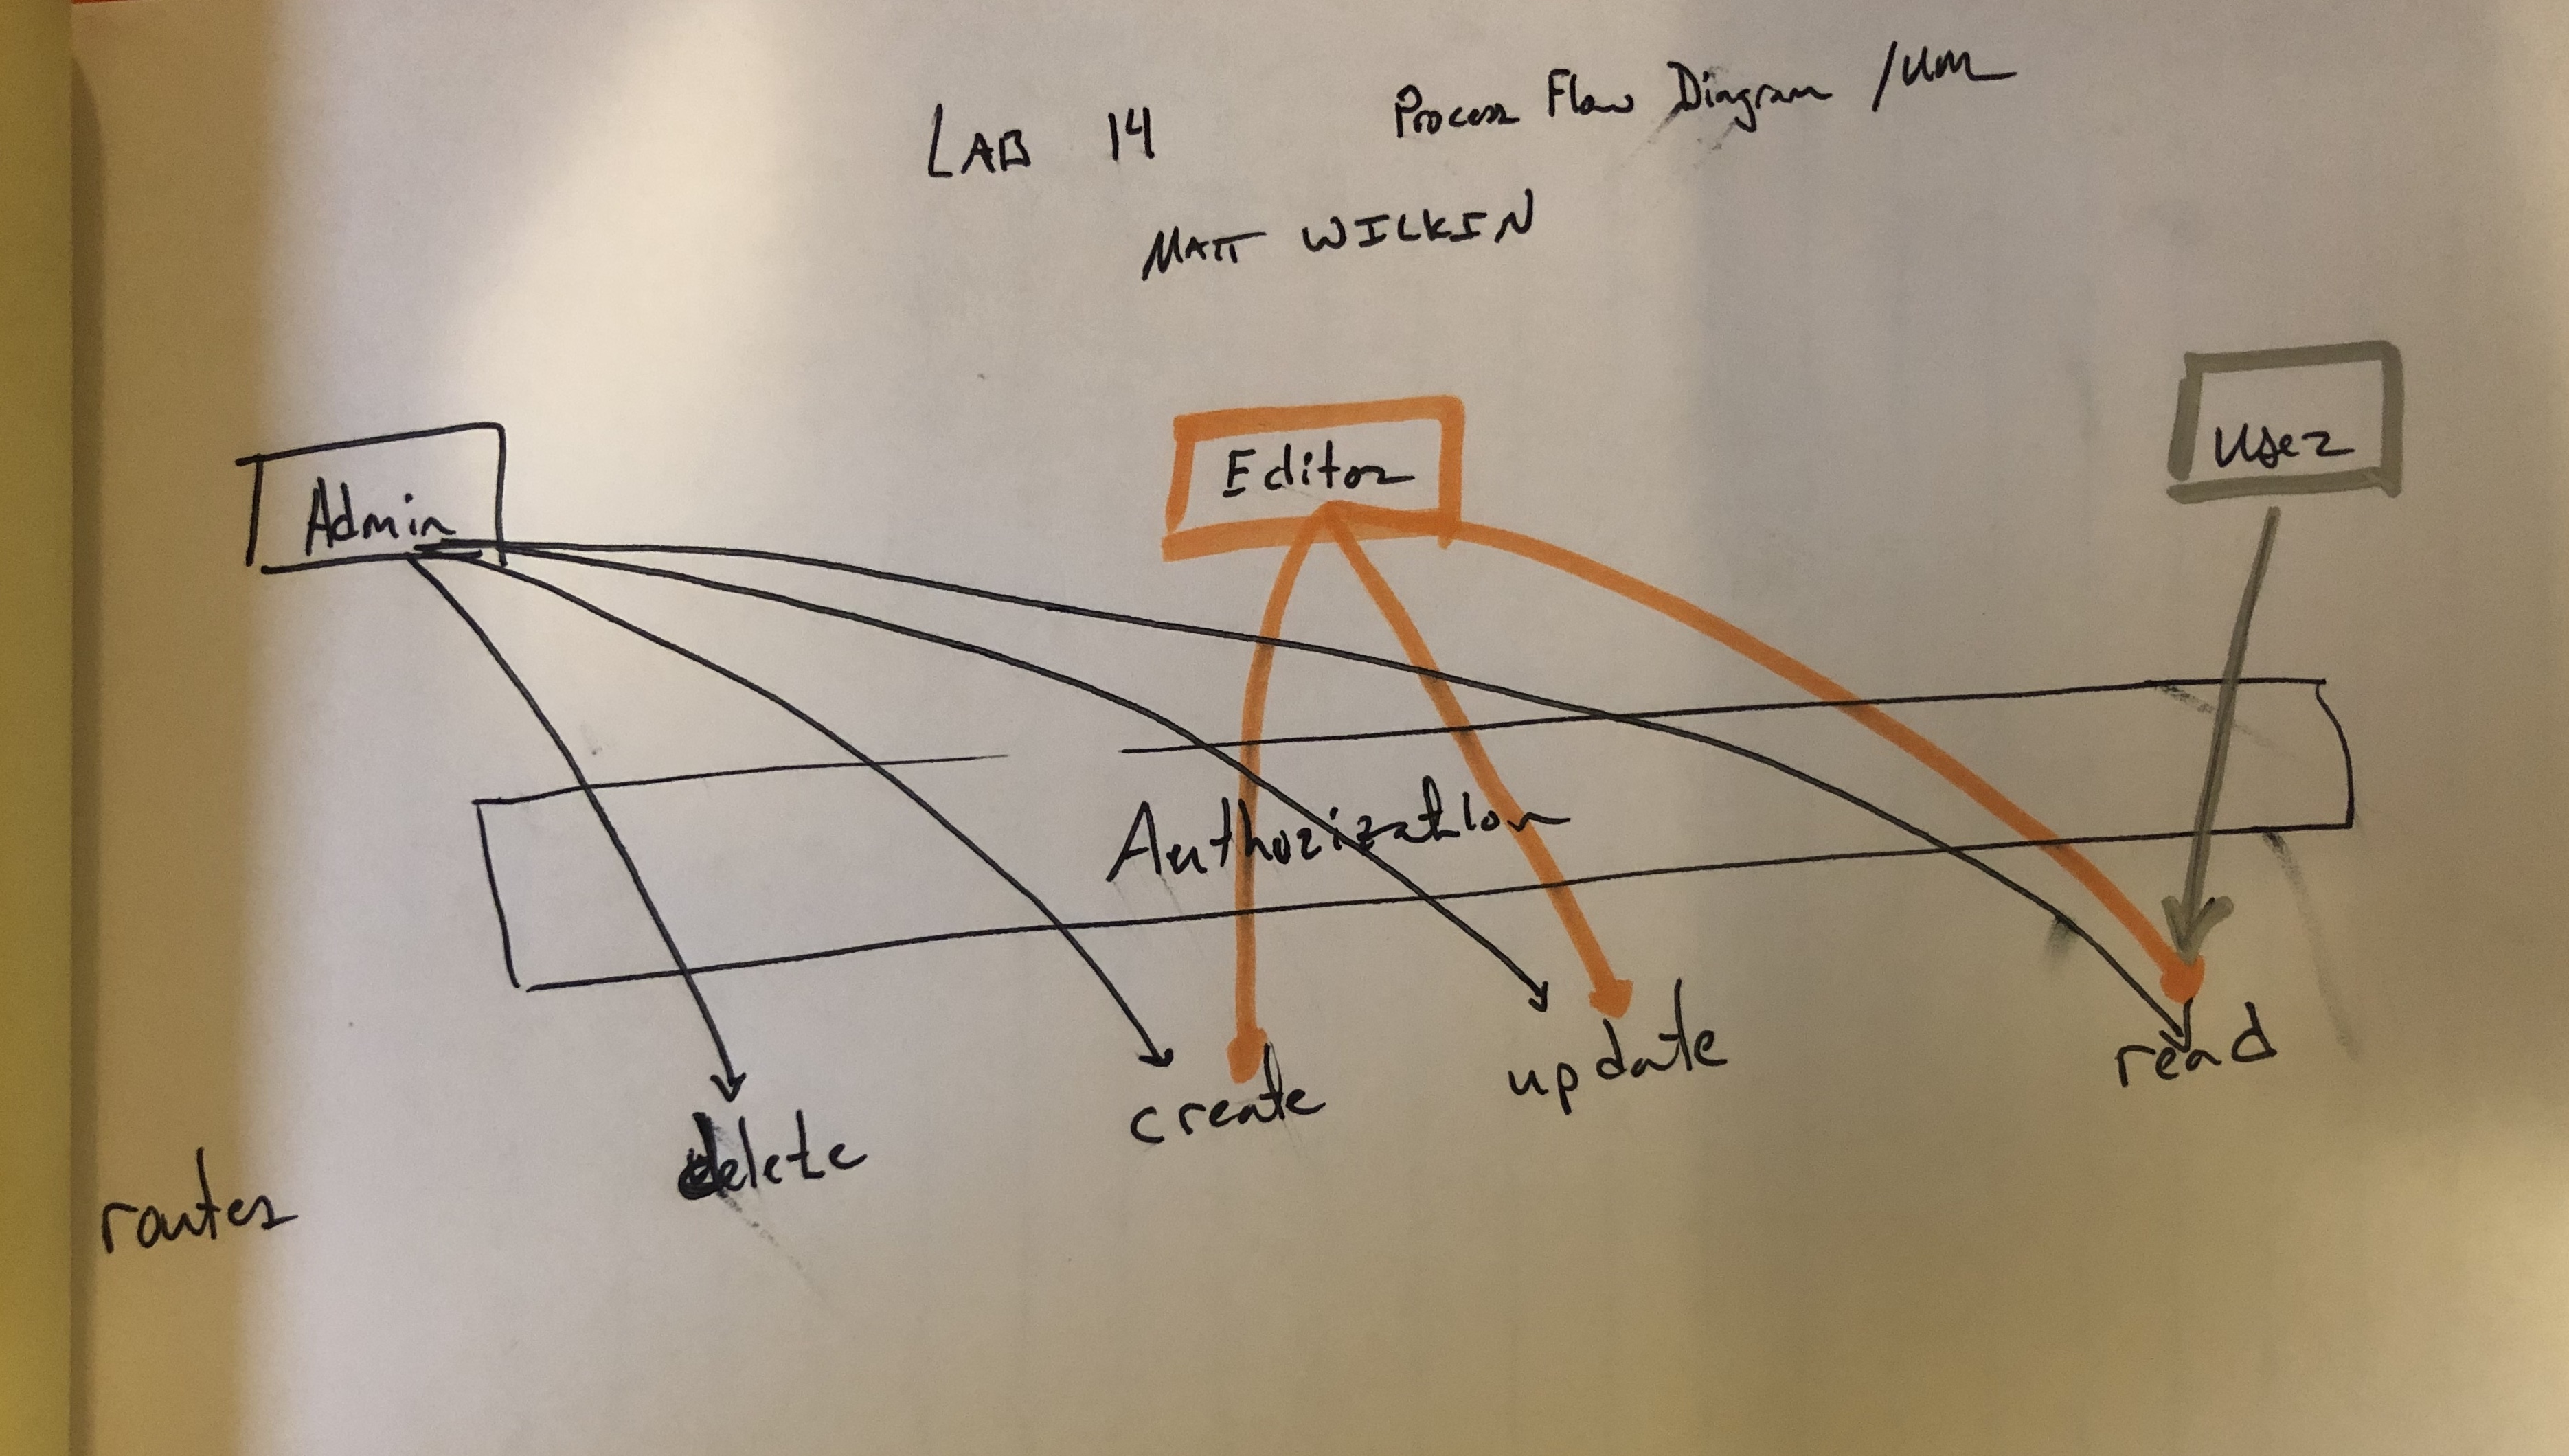 LAB 14
Process Flow Diagram /
MATT WILKIN
Admin
Editor
User
Authorization
delete
create
update
read
routes